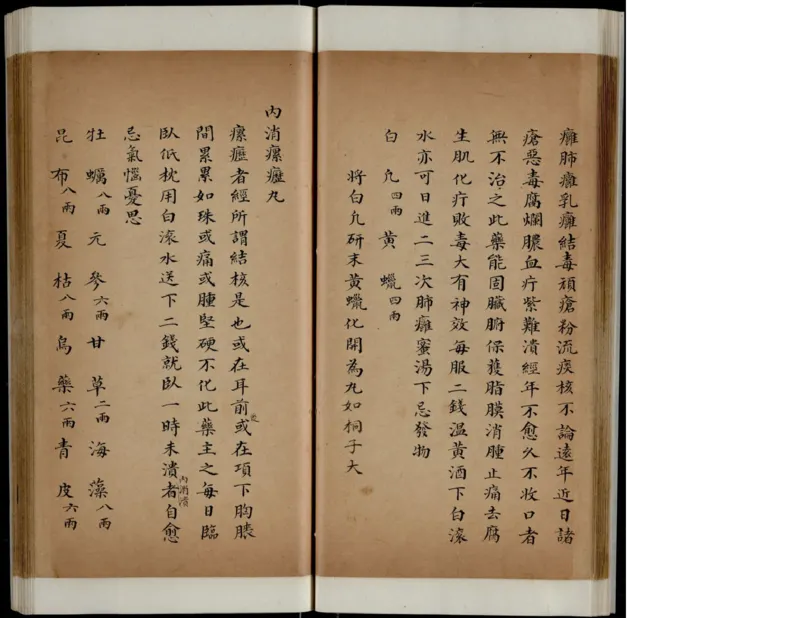 癰肺癰乳癰結毒頑瘡粉流痰核不論遠年近日諸
瘡惡毒腐爛膿血疔紫難潰經年不愈久不收口者
無不治之此藥能固臟腑保獲脂膜消腫止痛去腐
生肌化疔敗毒大有神效每服二錢温黃酒下白滾
水亦可日進二三次肺癰蜜湯下忌發物
白凢四兩黃蠟四兩
將白凢研末黃蠟化開為丸如桐子大
內消瘰癧丸
瘰癧者經所謂結核是也或在耳前或在項下胸膝
間累累如珠或痛或腫堅硬不化此藥主之每日臨
臥低枕用白滾水送下二錢就臥一時未潰者自愈
內消潰
忌氣惱憂思
牡蠣八兩元參六兩甘草二兩海藻八兩
昆布八兩夏枯八兩烏藥六兩青皮六兩